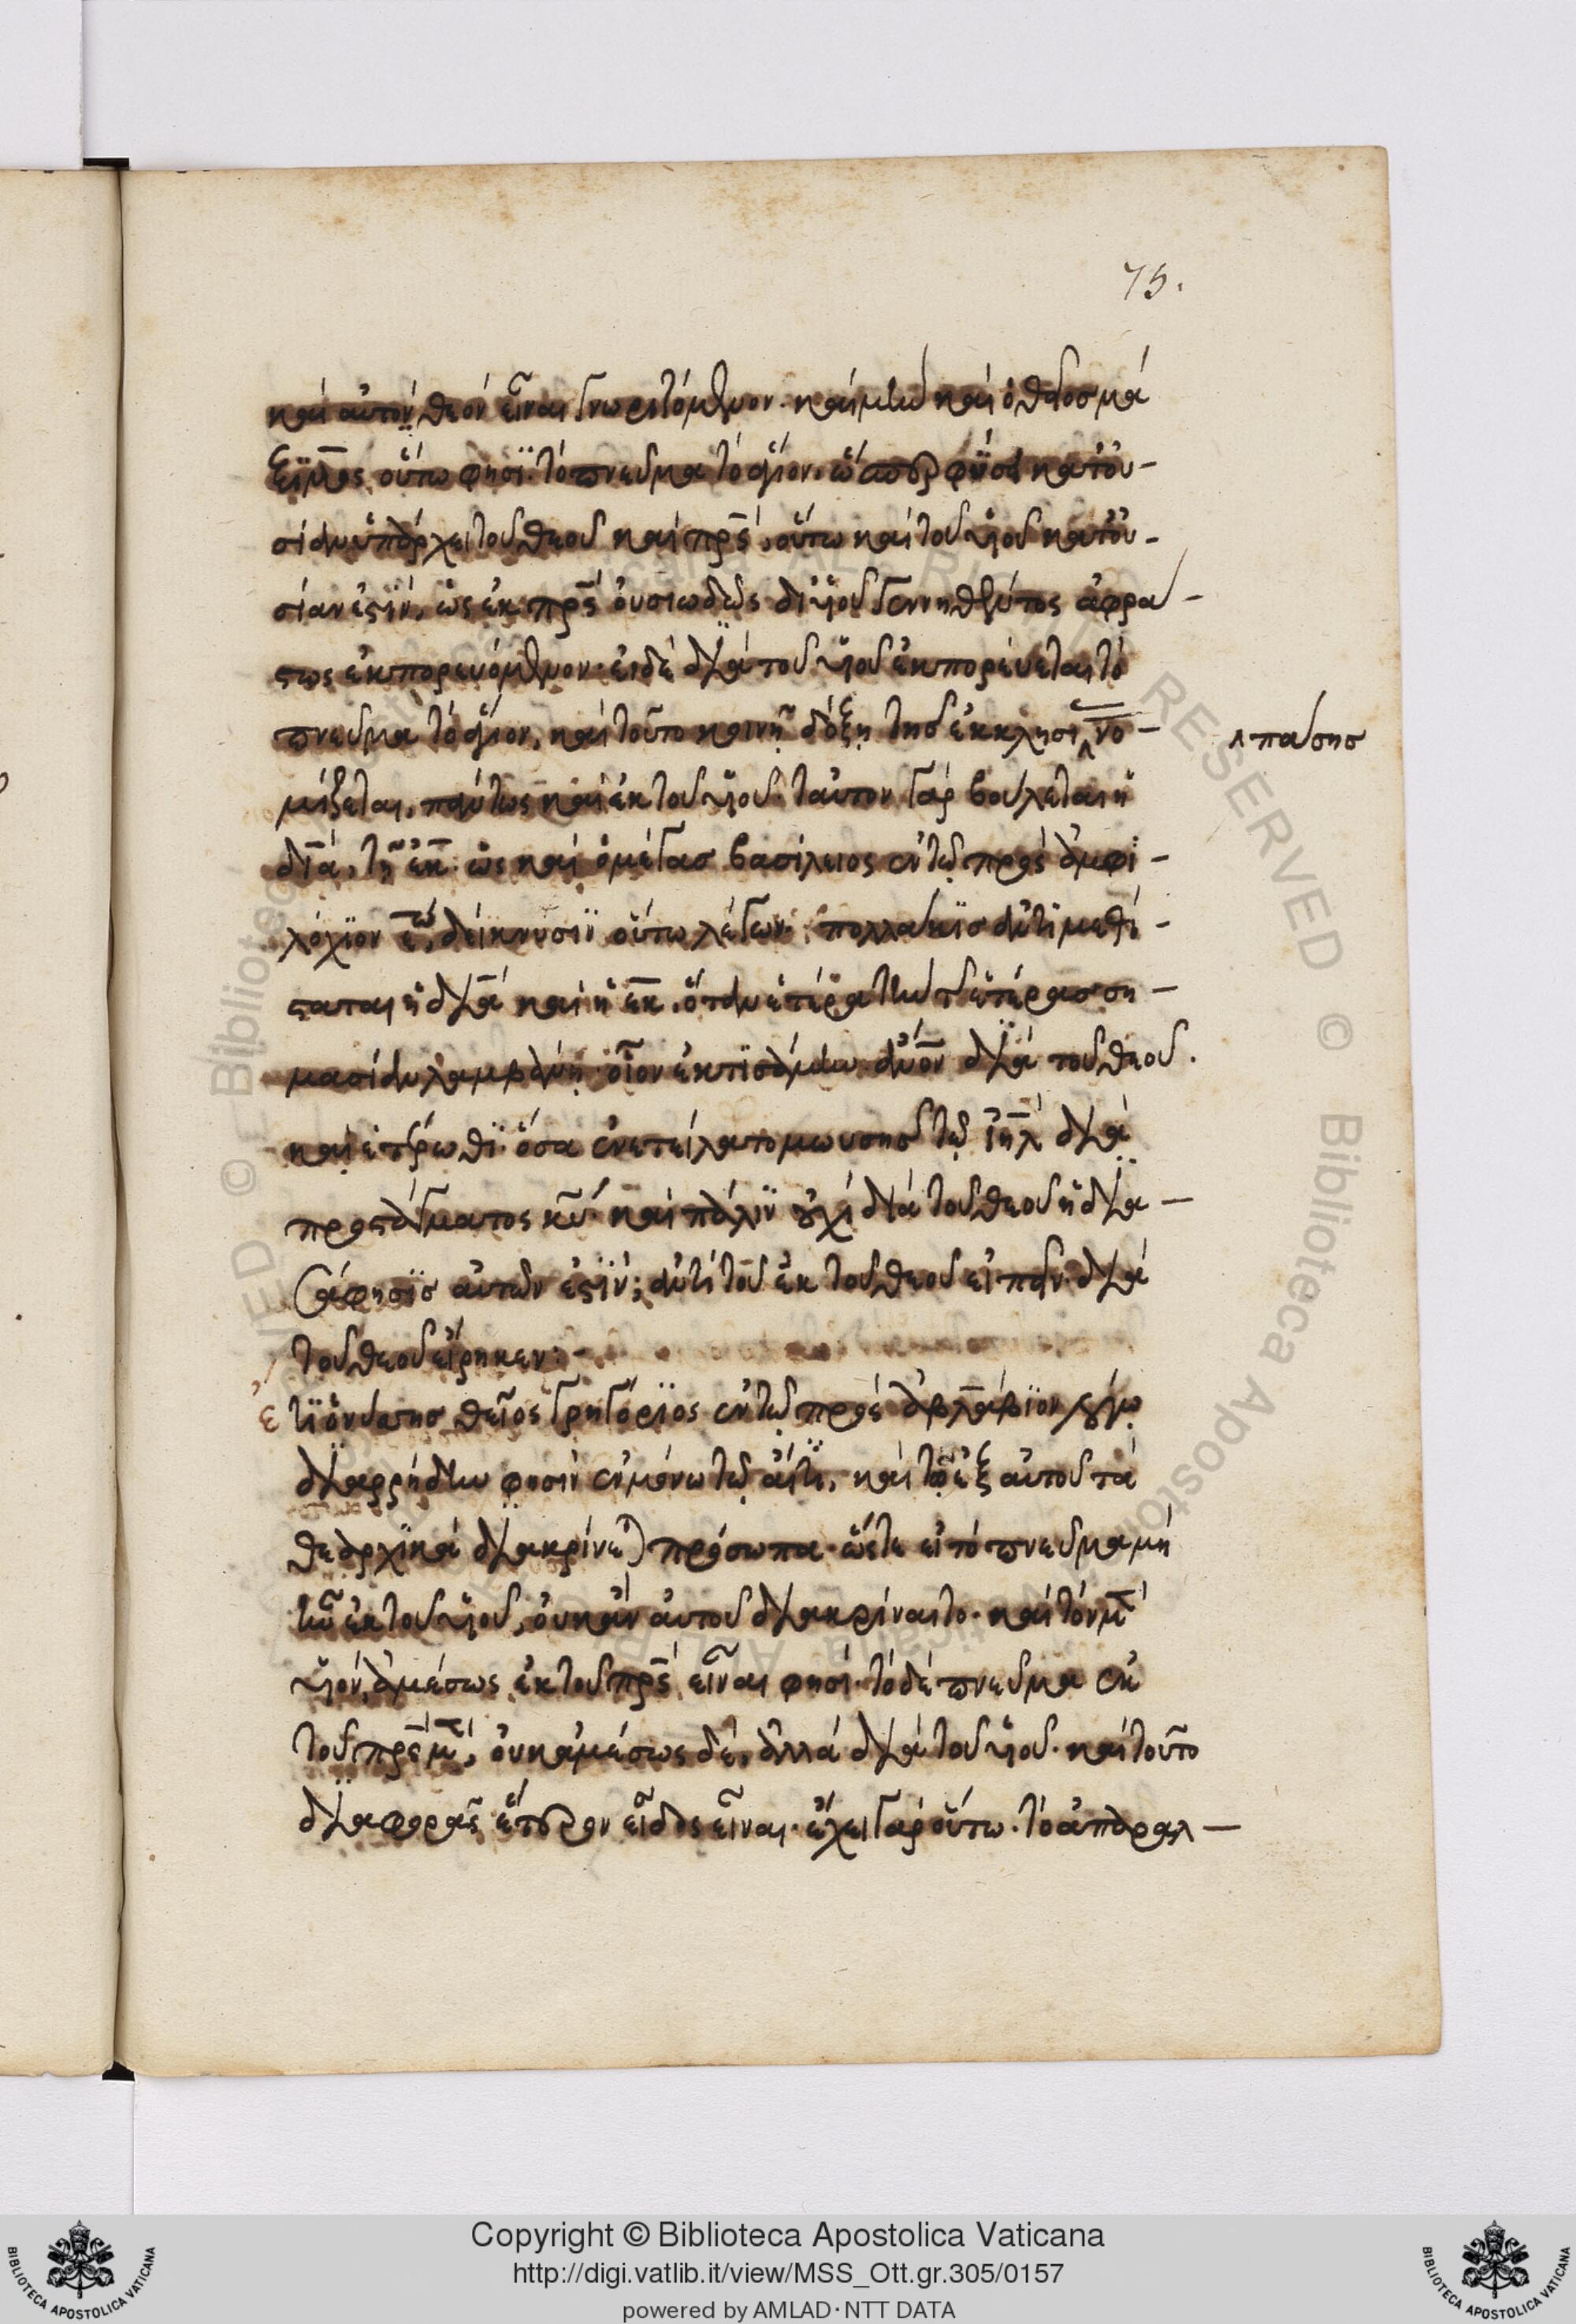 75.
καὶ αὐτὸν θεὸν εἶναι γνωριζόμενον. καὶ μὴν καὶ ὁ θεῖος μά
ξιμος οὕτω φησί. τὸ πνεῦμα τὸ ἅγιον, ὥσπερ φύσει κατ' οὐ-
σίαν ὑπάρχει τοῦ θεοῦ καὶ πρς, οὕτω καὶ τοῦ υἱοῦ κατ' οὐ-
σίαν ἐστίν, ὡς ἐκ πρς οὐσιωδῶς δι' υἱοῦ γεννηθέντος ἀφρά-
στως ἐκπορευόμενον. εἰ δὲ διὰ τοῦ υἱοῦ ἐκπορεύεται τὸ
πνεῦμα τὸ ἅγιον, καὶ τοῦτο κοινῇ δόξῃ τῆς ἐκκλησί νο-
πάσης
μίζεται, πάντως καὶ ἐκ τοῦ υἱοῦ. ταὐτὸν γὰρ βούλεται ἡ
διὰ, τῇ ἐκ. ὡς καὶ ὁ μέγας βασίλειος ἐν τῷ πρὸς ἀμφι-
λόχιον δείκνυσιν οὕτω λέγων. πολλάκις ἀντιμεθί-
σταται ἡ διὰ καὶ ἡ ἐκ, ὅταν ἑτέρα τὴν τῆς ἑτέρας ση-
μασίαν λαμβάνῃ. οἷον ἐκτησάμην ἄνον διὰ τοῦ θεοῦ.
καὶ ἑτέρωθι. ὅσα ἐνετείλατο μωυσῆς τῷ ιηλ διὰ
προστάγματος κυ. καὶ πάλιν οὐχὶ διὰ τοῦ θεοῦ ἡ δια-
σάφησις αὐτῶν ἐστίν; ἀντὶ τοῦ ἐκ τοῦ θεοῦ εἰπεῖν. διὰ
τοῦ θεοῦ εἴρηκεν:-
ἔτι ὁ νύσσης θεῖος γρηγόριος ἐν τῷ πρὸς ἀβλάβιον λόγῳ
διαρρήδην φησὶν ἐν μόνῳ τῷ αἰτίῳ, καὶ τῷ ἐξ αὐτοῦ τὰ
θεαρχικὰ διακρίνεται πρόσωπα. ὥστε εἰ τὸ πνεῦμα μὴ
ἦν ἐκ τοῦ υἱοῦ, οὐκ ἂν αὐτοῦ διακρίναιτο. καὶ τὸν μὲν
υἱὸν, ἀμέσως ἐκ τοῦ πρς εἶναι φησί. τὸ δὲ πνεῦμα ἐκ
τοῦ πρς μὲν, οὐκ ἀμέσως δὲ, ἀλλὰ διὰ τοῦ υἱοῦ. καὶ τοῦτο
διαφορᾶς ἕτερον εἶδος εἶναι. ἔχει γὰρ οὕτω. τὸ ἀπαραλ-
Copyright © Biblioteca Apostolica Vaticana
http://digi.vatlib.it/view/MSS_Ott.gr.305/0157
powered by AMLAD·NTT DATA